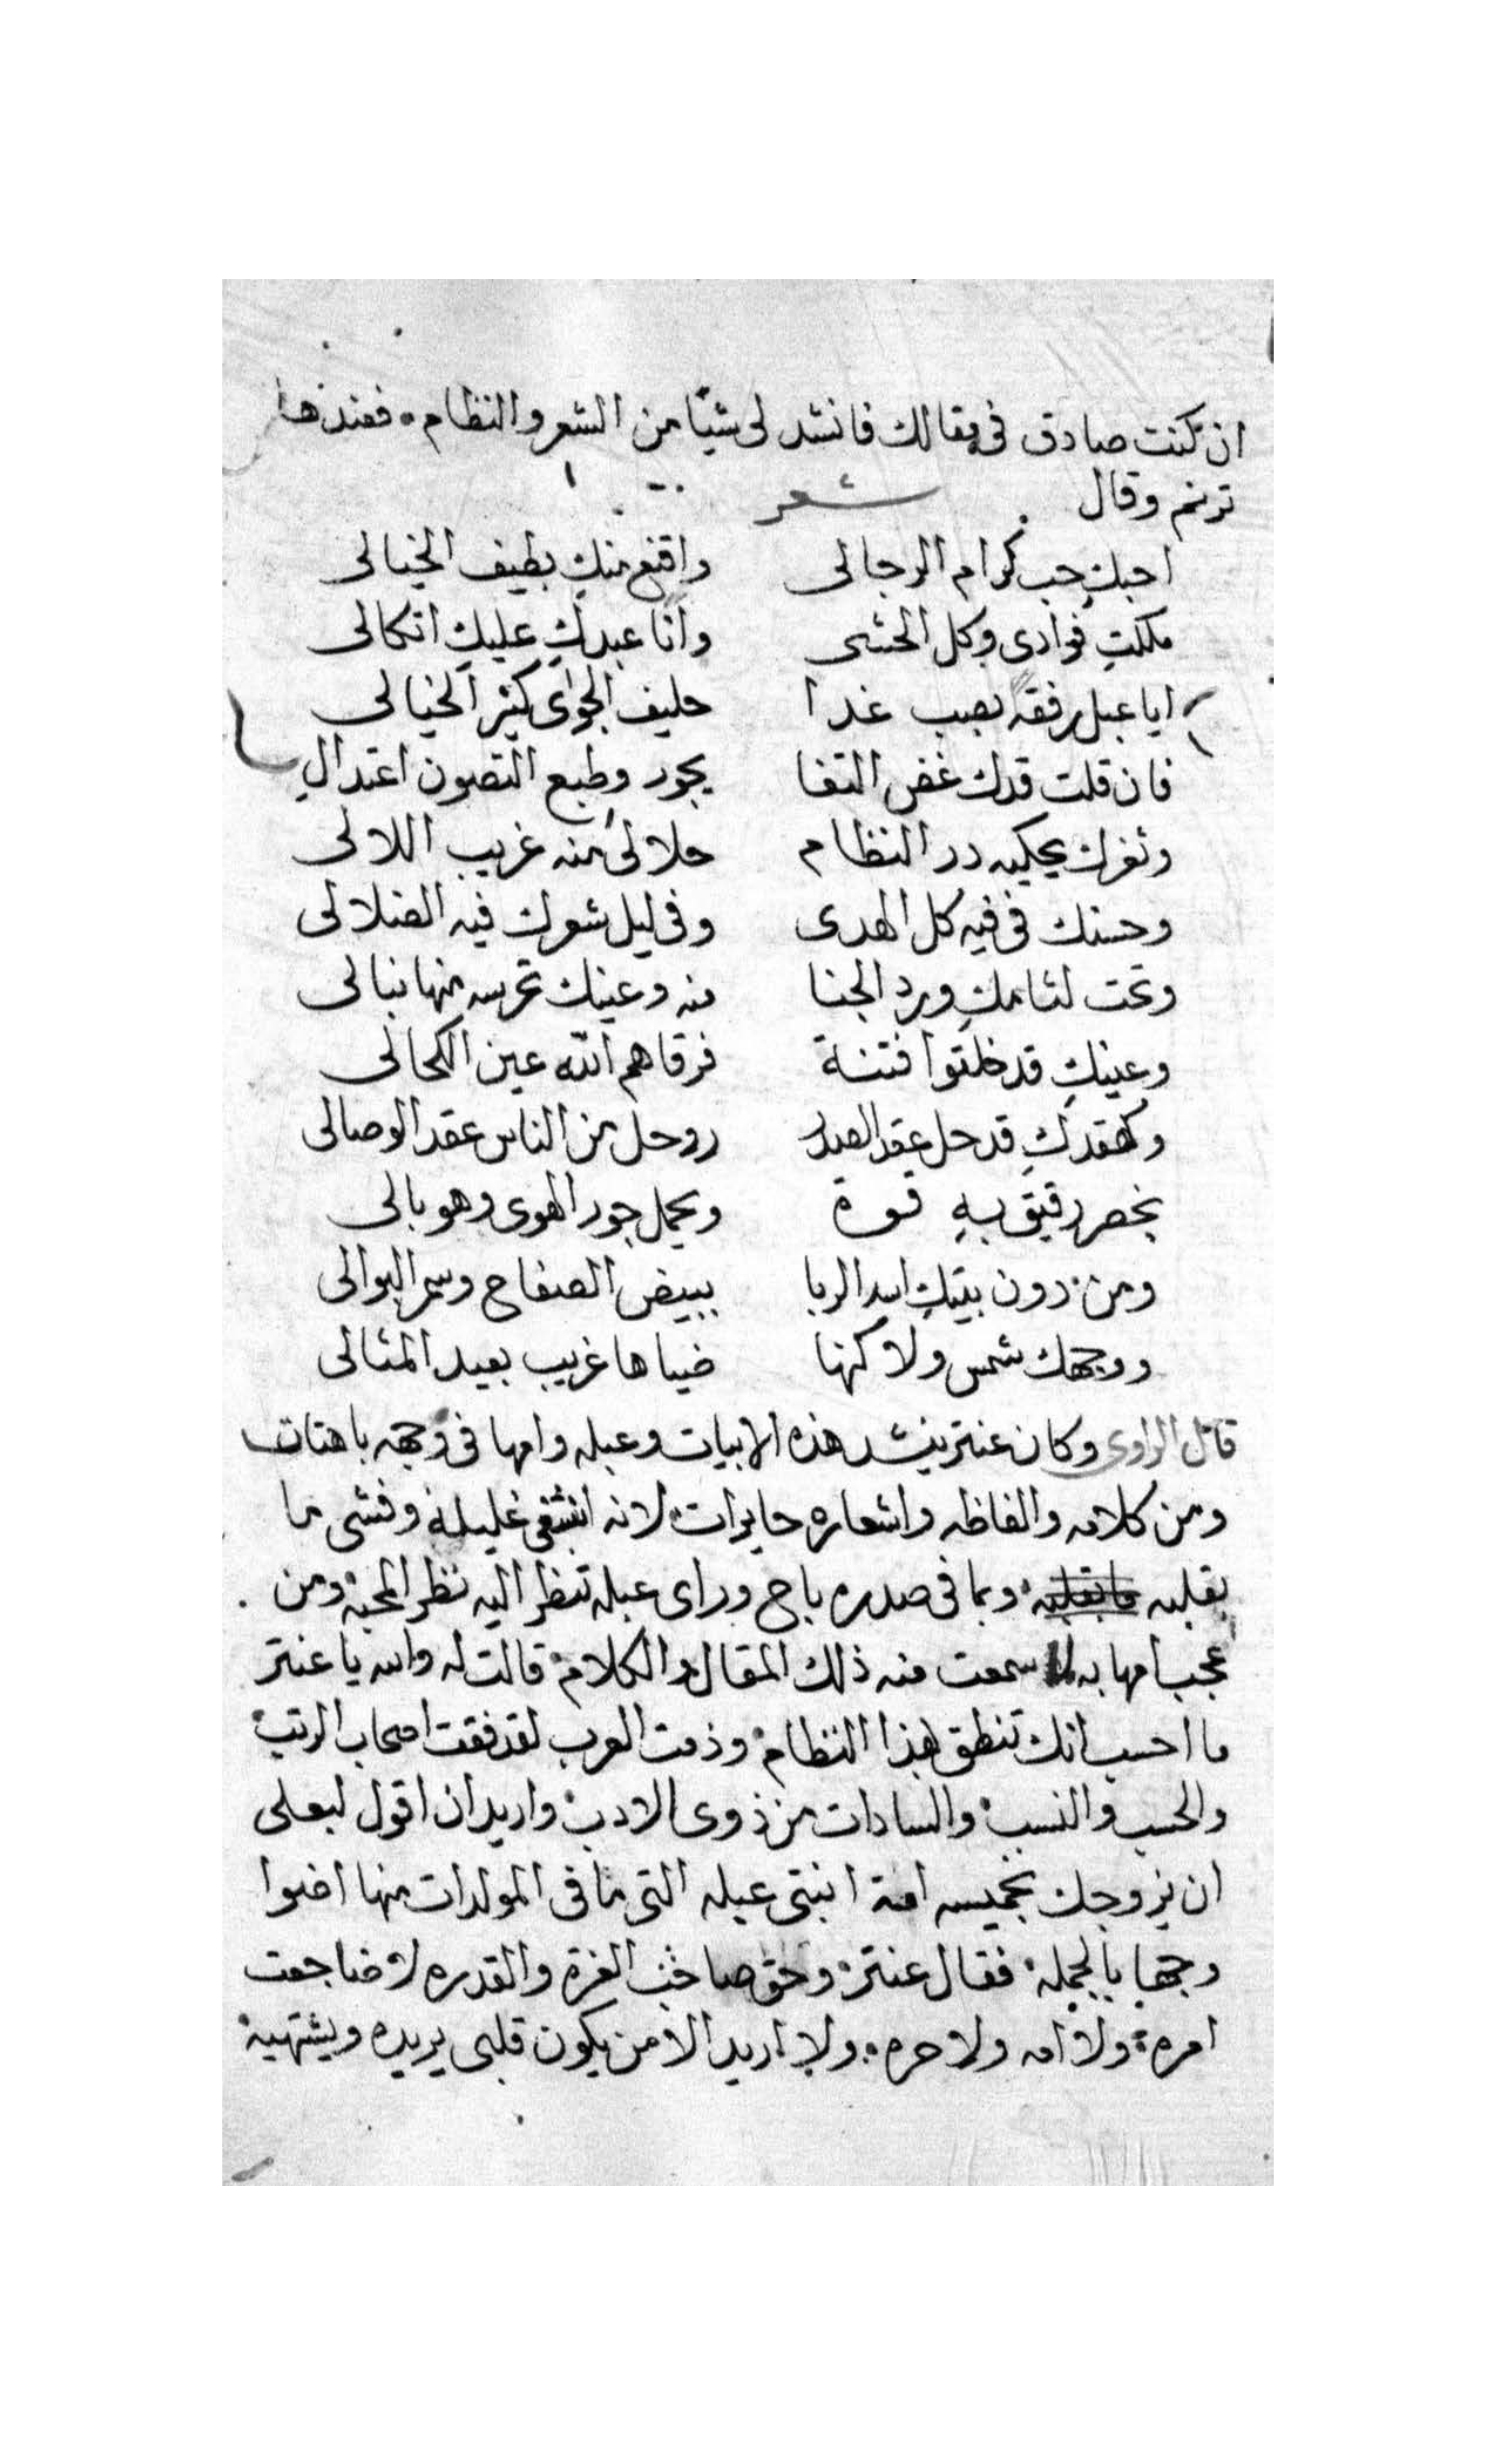 ان كنت صادق فى مقالك فانشد لى شيًا من الشعر والنظام. فعندها
ترنم وقال شعر
احبكِ حب كرام الرجالى واقنع منكِ بطيف الخيالى
ملكتِ فوادى وكل الحشى وانا عبدكِ عليكِ اتكالى
ايا عبل رفقه بصب غدا حليف الجوى كثير الخيالى
فان قلت قدك غض النقا يجور وطبع الغصون اعتدال
وثغرك يحكيه در النظام حلالى منه غريب اللالى
وحسنك فى فيه كل الهدى وفى ليل شعرك فيه الضلالى
وتحت لثامكِ ورد الجنا منه وعينك تحرسه منها نبالى
وعينكِ قد خلقوا فتنة فرقاهم الله عين الكحالى
قدحل عقد وحل من الناس عقد الوصالى
بخصر رقيق بهِ قوة ويحمل جور الهوى وهو بالى
ومن دون بيتكِ اسد الربا ببيض الصفاح وسمر العوالى
ووجهك شمس ولاكنها ضياها غريب بعيد المثالى
قال الراوى وكان عنتر ينشد هذه الابيات وعبله وامها فى وجهه باهتات
ومن كلامه والفاظه واشعاره حايرات لانه انشفى غليله وفشى ما
بقلبه وبما فى صدره باح وراى عبله تنظر اليه نظر المحبه ومن
عجب امها به لما سمعت منه ذلك المقال والكلام قالت له والله يا عنتر
ما احسب انك تنطق بهذا النظام وذمت العرب لقد فقت اصحاب الرتب
والحسب والنسب والسادات من ذوى الادب واريد ان اقول لبعلى
ان يزوجك بخميسه امة ابنتى عبله التى ما فى المولدات منها اضوا
وجها بالجمله فقال عنتر وحق صاحب العزة والقدره لا ضاجعت
امره ولا امه ولا حره ولا اريد الا من يكون قلبى يريده ويشتهيه